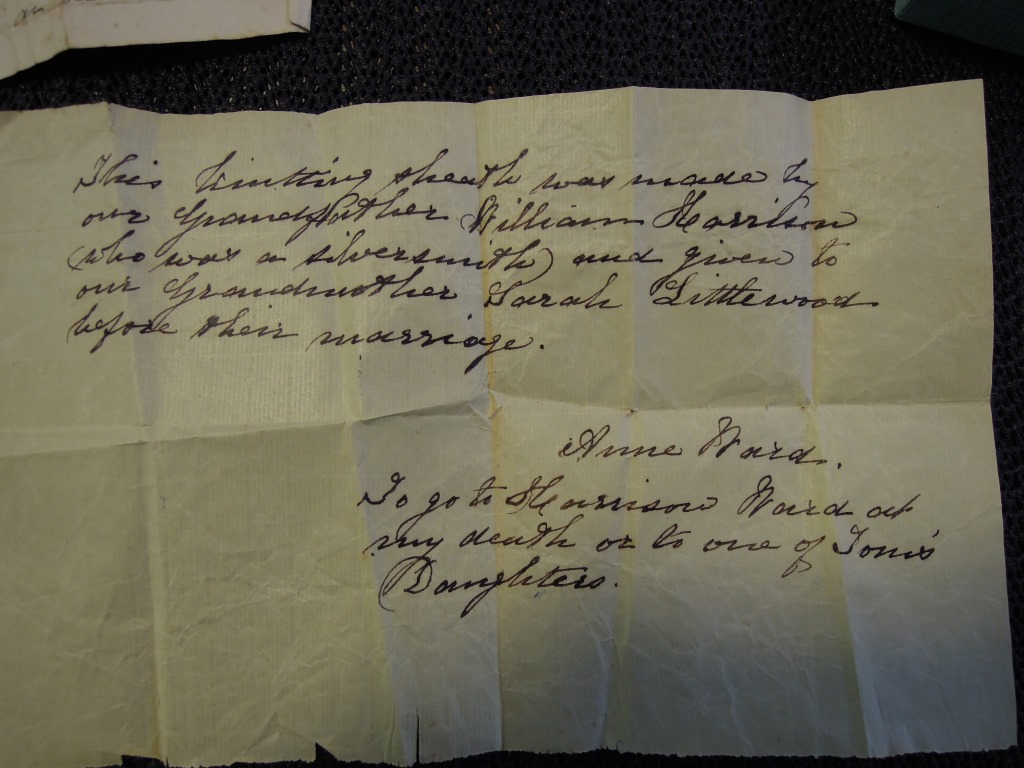 This knitting sheath was made by
our Grandfather William Harrison
(who was a silversmith) and given to
our Grandmother Sarah Littlewood
before their marriage.
Anne Ward.
To go to Harrison Ward at
my death or to one of Tom's
Daughters.